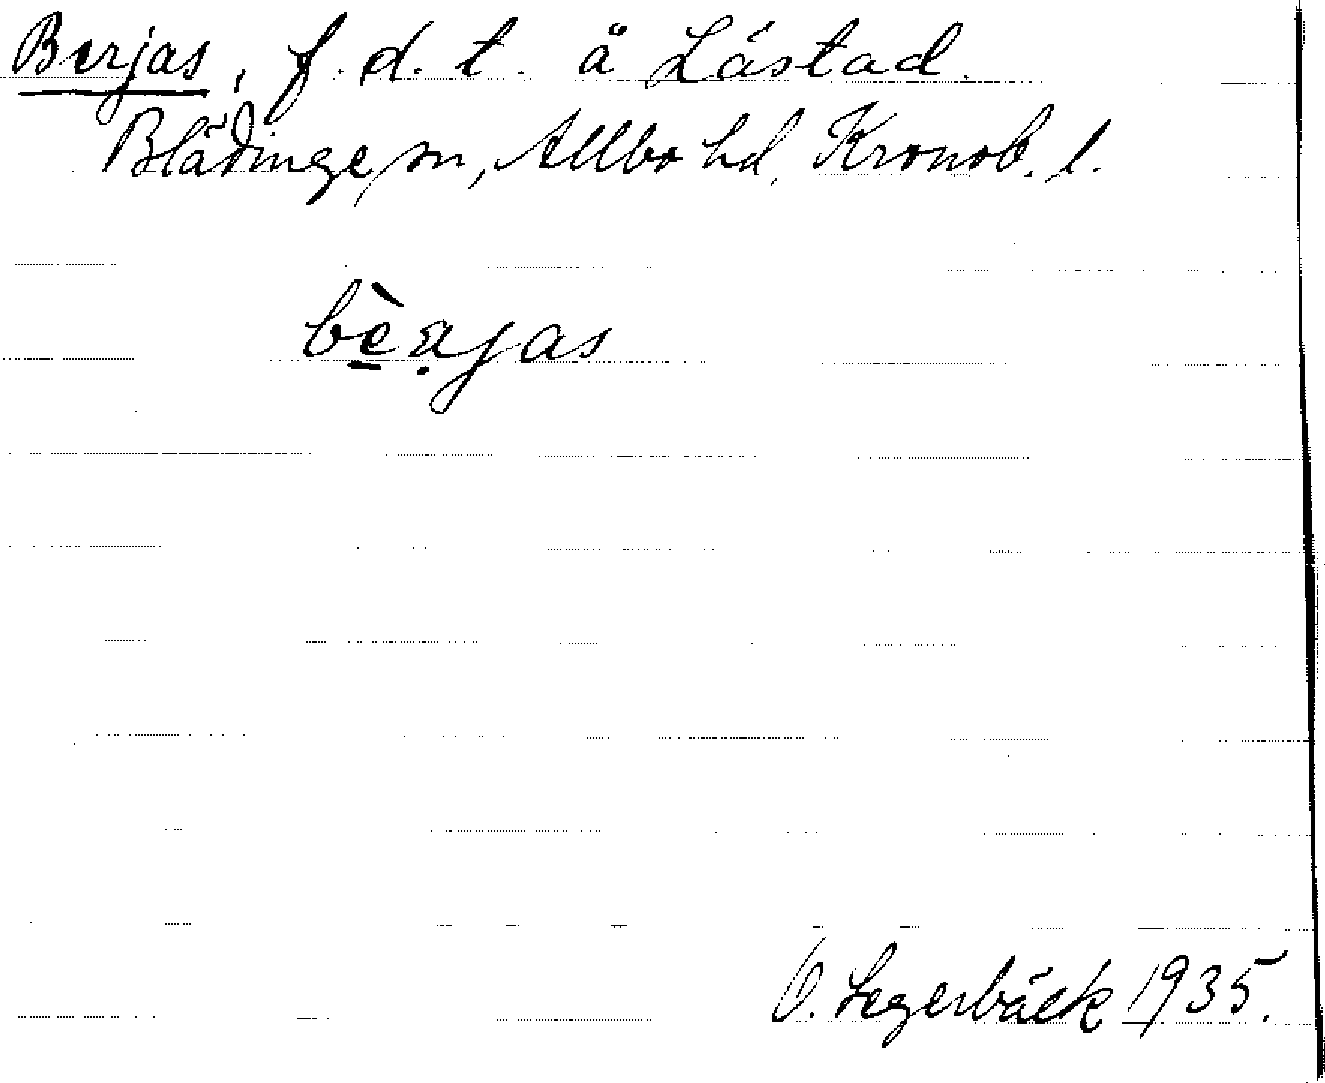 Berjas, f.d.t. å Låstad.
Blädinge sn, Allbo hd, Kronob. l.
bèrjas
O. Segerbäck 1935.